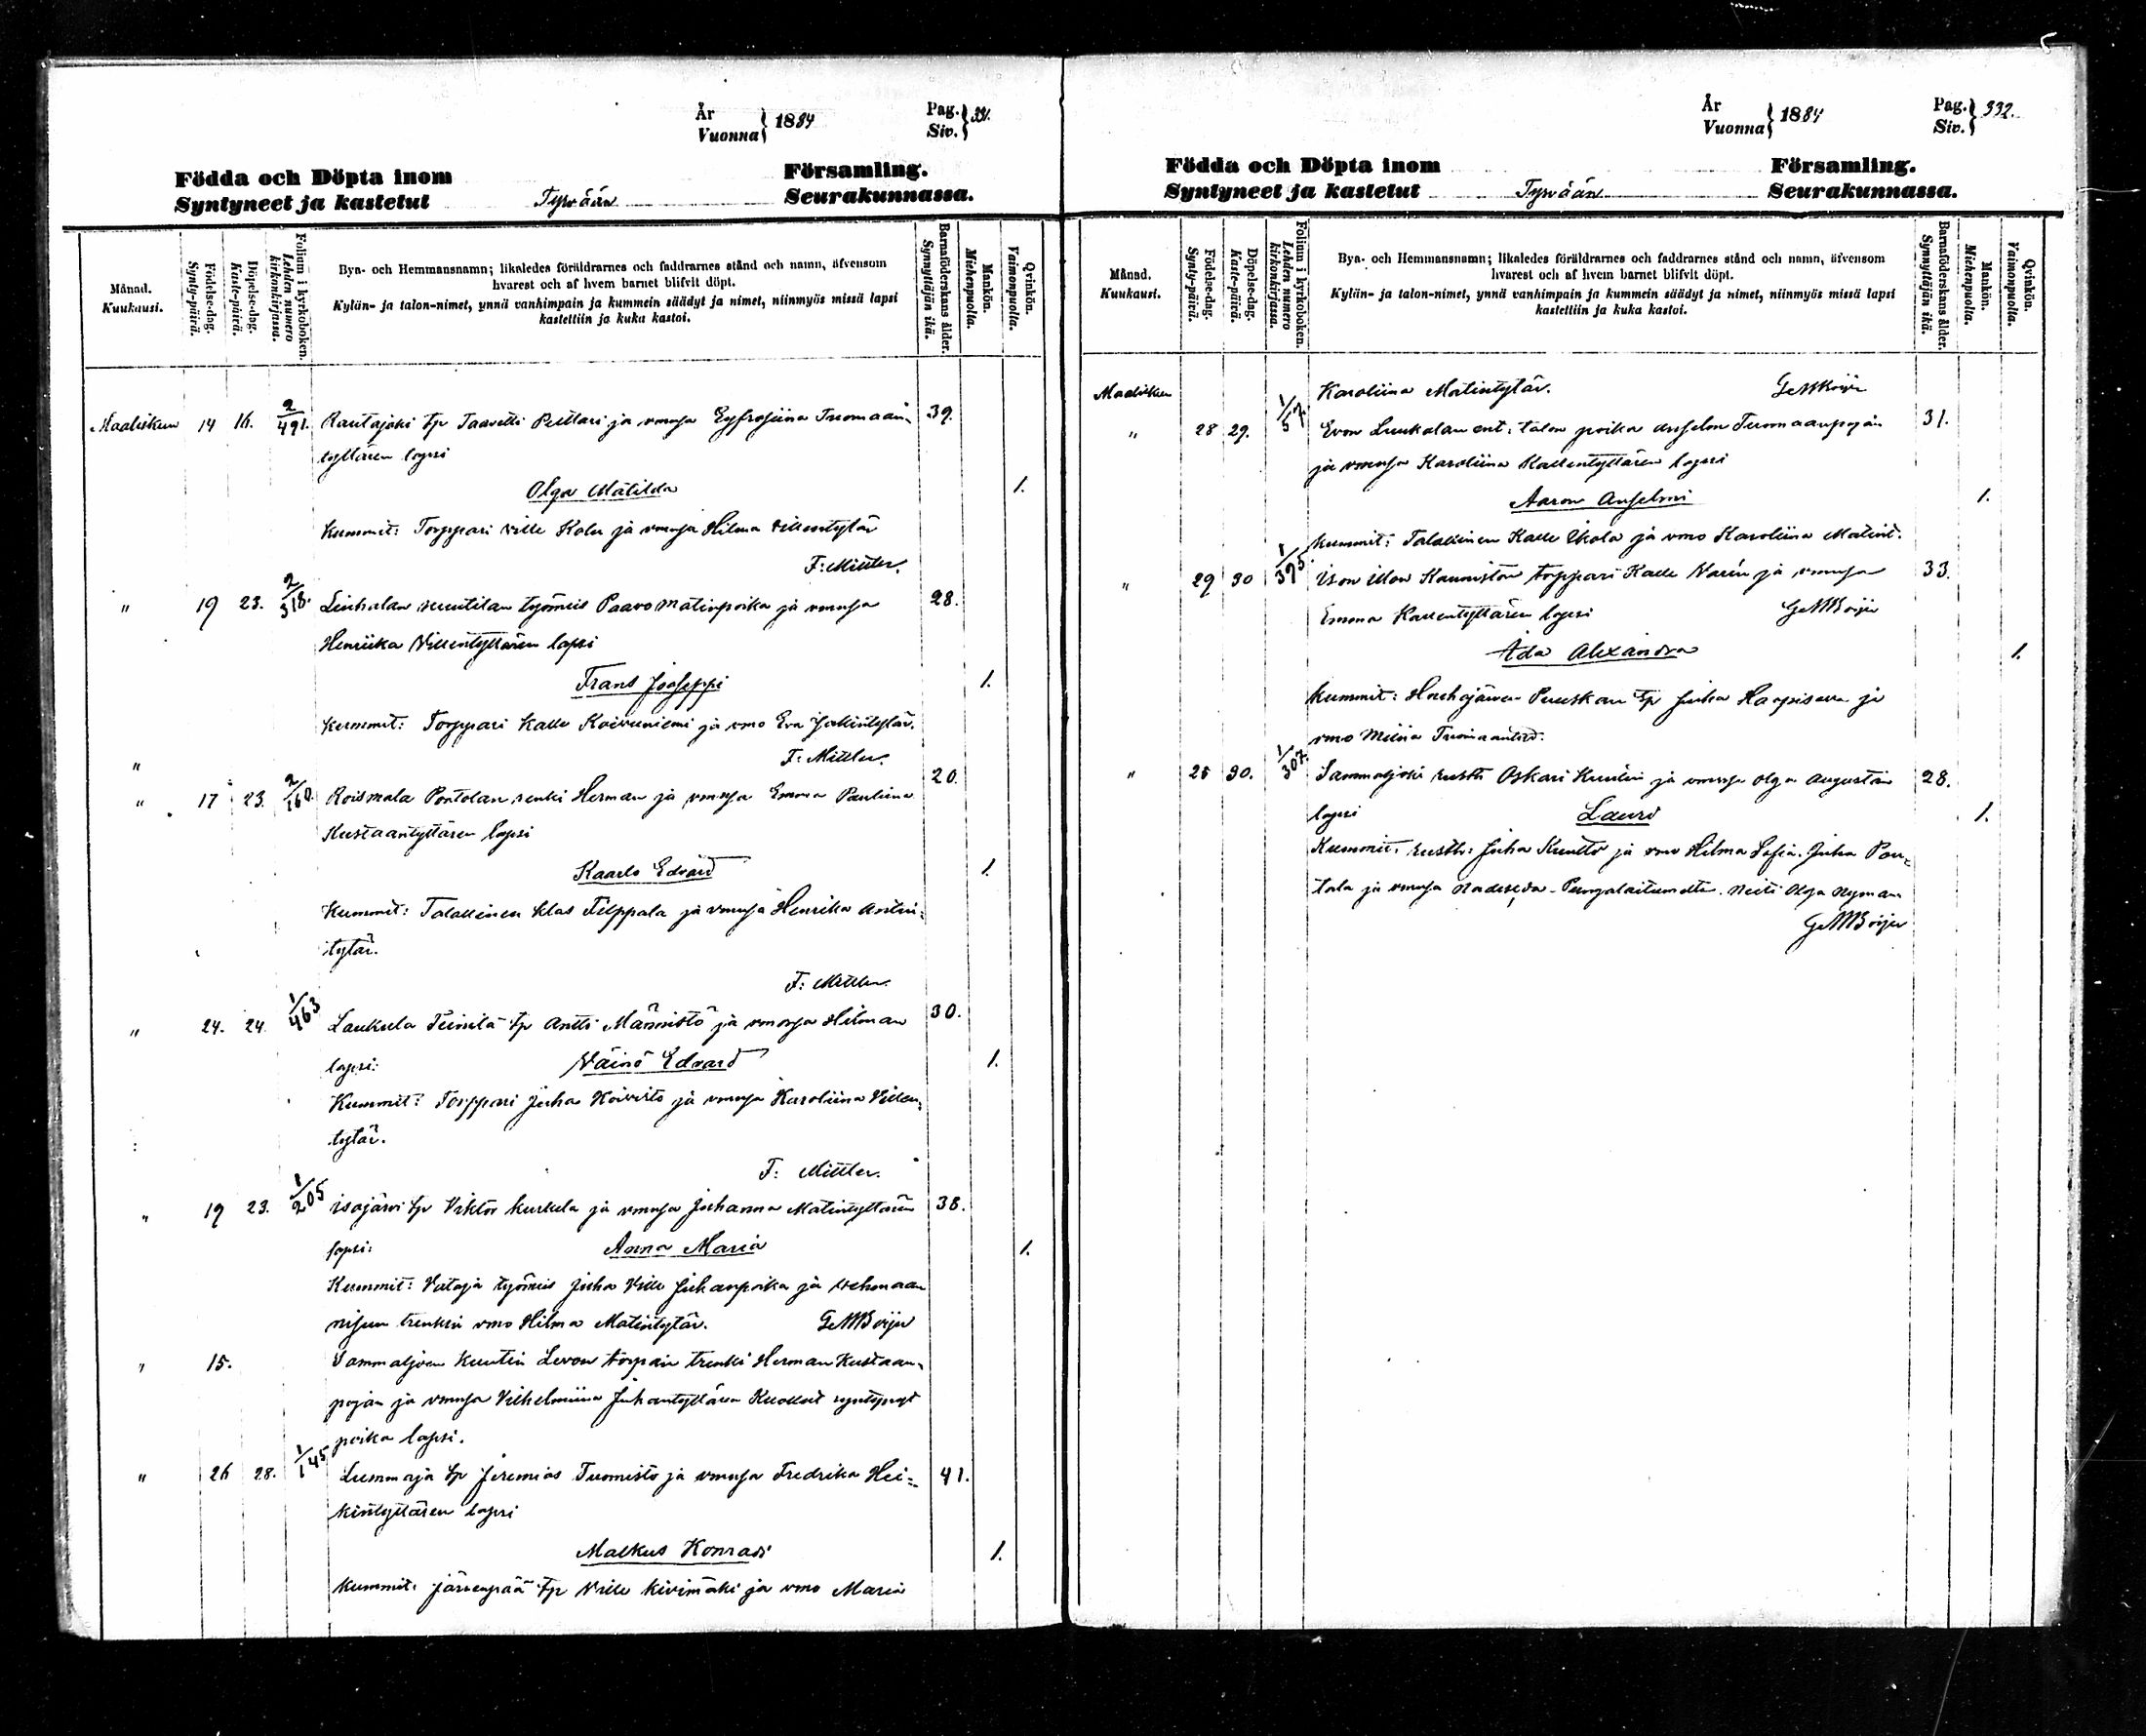 År
Vuonna } 1884
Pag.
Siv. } 331.
Födda och Döpta inom Församling.
Syntyneet ja kastetut Tyrvään Seurakunnassa.
Månad.
Kuukausi.
Födelse-dag.
Synty-päivä.
Döpelse-dag.
Kaste-päivä.
Folium i kyrkoboken.
Lehden numero kirkonkirjassa.
Bya- och Hemmansnamn; likaledes föräldrarnes och faddrarnes stånd och namn, äfvensom
hvarest och af hvem barnet blifvit döpt.
Kylän- ja talon-nimet, ynnä vanhimpain ja kummein säädyt ja nimet, niinmyös missä lapsi
kastettiin ja kuka kastoi.
Barnaföderskans ålder.
Synnyttäjän ikä.
Mankön.
Miehenpuolta.
Qvinkön.
Vaimonpuolta.
Maaliskuu 14 16. 2/491. Rautajoki tp Taavetti Pelttari ja vmnsa Eyfrosiina Tuomaan- 39.
tyttären lapsi
Olga Matilda 1.
Kummit: Torppari Ville Kalu ja vmnsa Hilma Villentytär
F: Mittler.
" 19 23. 2/318. Liuhalan työmies Paavo Matinpoika ja vmnsa 28.
Henriika Villentyttären lapsi
Frans Jooseppi 1.
Kummit: Torppari Kalle Koivuniemi ja vmo Eva
F: Mittler.
"
" 17 23. 2/160. Roismala Pontolan renki Herman ja vmnsa Emma Pauliina 20.
Kustaantyttären lapsi
Kaarlo Edvard 1.
Kummit: Talollinen Klas Filppala ja vmnsa Henrika Antin-
tytär.
F: Mittler.
" 24. 24. 1/463 Laukula Teinilä tp Antti Männistö ja vmnsa Hilman 30.
lapsi: Väinö Edvard 1.
Kummit: Torppari Juha Koivisto ja vmnsa Karoliina Villen-
tytär.
F: Mittler.
" 19 23. 1/205 Isojärvi tp Viktor Kurkela ja vmnsa Johanna Matintyttären 38.
lapsi: Anna Maria 1.
Kummit: Vataja työmies Juha Ville Juhanpoika ja
trenkin vmo Hilma Matintytär. G. M. Boijer
" 15. Sammaljoen Kuutin Levon torpan trenki Herman Kustaan-
pojan ja vmnsa Vilhelmiina Juhantyttären Kuolleet syntynyt
poika lapsi.
" 26 28. 1/145 Lummaja tp Jeremias Tuomisto ja vmnsa Fredrika Hei- 41.
kintyttären lapsi
Malkus Konradi 1.
Kummit: Järvenpää tp Ville Kivimäki ja vmo Maria
År
Vuonna } 1884
Pag.
Siv. } 332.
Födda och Döpta inom Församling.
Syntyneet ja kastetut Tyrvään Seurakunnassa.
Månad.
Kuukausi.
Födelse-dag.
Synty-päivä.
Döpelse-dag.
Kaste-päivä.
Folium i kyrkoboken.
Lehden numero kirkonkirjassa.
Bya- och Hemmansnamn; likaledes föräldrarnes och faddrarnes stånd och namn, äfvensom
hvarest och af hvem barnet blifvit döpt.
Kylän- ja talon-nimet, ynnä vanhimpain ja kummein säädyt ja nimet, niinmyös missä lapsi
kastettiin ja kuka kastoi.
Barnaföderskans ålder.
Synnyttäjän ikä.
Mankön.
Miehenpuolta.
Qvinkön.
Vaimonpuolta.
Maaliskuu Karoliina Matintytär. G. M. Boijer
" 28 29. 1/57. Evon Luukalan ent: talon poika Anselm Tuomaanpojan 31.
ja vmnsa Karoliina Kallentyttären lapsi
Aaron Anselmi 1.
Kummit: Talollinen Kalle Ekola ja vmo Karoliina Matint.
" 29 30 1/395. Ison Illon Kanniston torppari Kalle Varin ja vmnsa 33.
Emma Kallentyttären lapsi G. M. Boijer
Ida Alexandra 1.
Kummit: Houhajärven Puuskan tp Juha Haapisaari ja
vmo Miina
" 25 30. 1/307. Sammaljoki rusth Oskari Kuutin ja vmnsa Olga Augustan 28.
lapsi Lauri 1.
Kummit. rusth: Juha Kuutti ja vmo Hilma Sofia. Juha Pou-
tala ja vmnsa Neiti Olga Nyman
G. M. Boijer